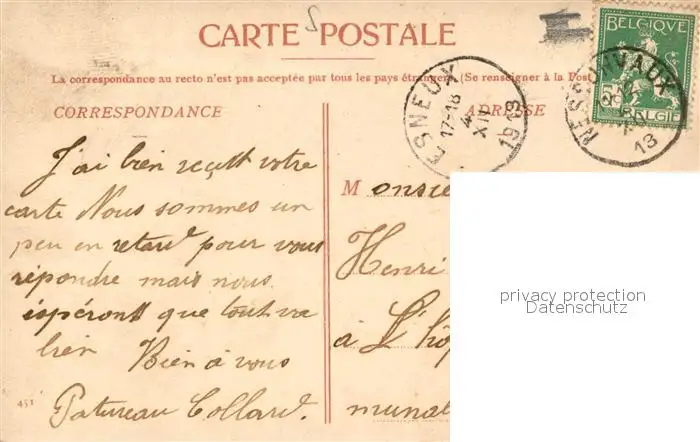 CARTE POSTALE
La correspondance au recto n'est pas acceptée par tous les pays étrangers (Se renseigner à la Post
CORRESPONDANCE
J'ai bien reçutt votre
carte Nous sommes un
peu en retard pour vous
répondre mais nous
éspéronts que tout va
bien Bien à vous
Patureau Collard.
451
ADRESSE
Monsie
Henri
à L'hôp
munal
ESNEUX
17-18
4
XII
1913
BELGIQUE
5
BELGIE
NESSONVAUX
13
privacy protection
Datenschutz